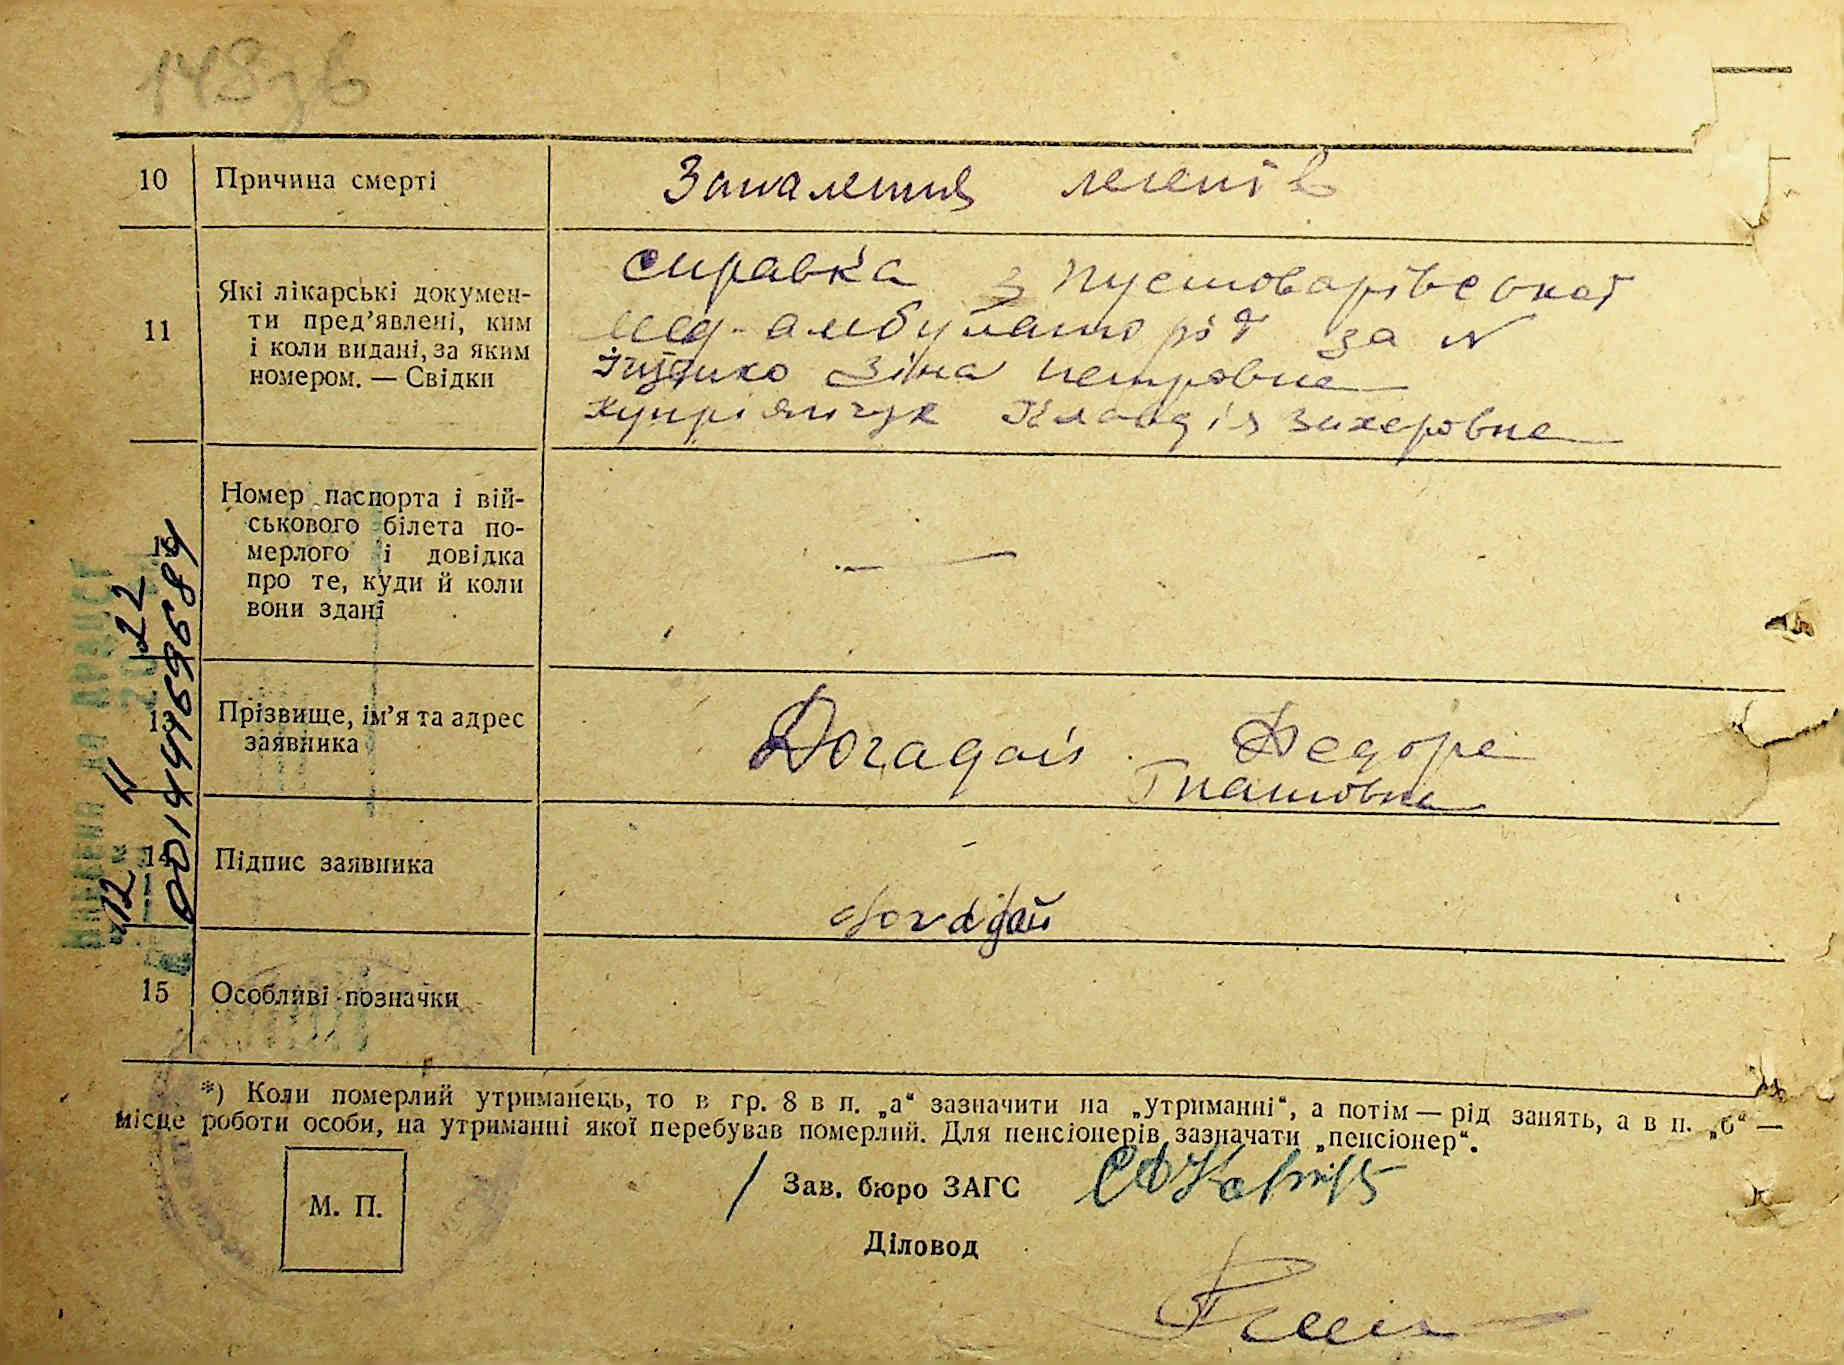 148зв
10 Причина смерті Запалення легенів
11 Які лікарські докумен-
ти пред’явлені, ким
і коли видані, за яким
номером. — Свідки
справка з Пустоварівської
мед-амбулаторії за №
Зіна Петровна
Купріянчук Клавдія Захаровна
12 Номер паспорта і вій-
ськового білета по-
мерлого і довідка
про те, куди й коли
вони здані
— —
13 Прізвище, ім’я та адрес
заявника
Догадай Федора
Гнатовна
14 Підпис заявника
Догадай
15 Особливі позначки
*) Коли померлий утриманець, то в гр. 8 в п. „а“ зазначити на „утриманні“, а потім — рід занять, а в п. „б“ —
місце роботи особи, на утриманні якої перебував померлий. Для пенсіонерів зазначати „пенсіонер“.
М. П.
/ Зав. бюро ЗАГС
Діловод
„12“ 11 2022
00144469689